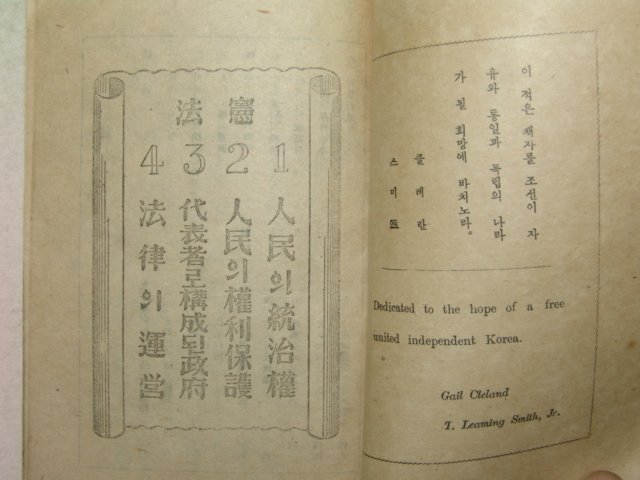 憲法
1 人民의統治權
2 人民의權利保護
3 代表者로構成되政府
4 法律의運営
이 적은 책자를 조선이 자
유와 통일과 독립의 나라
가 된 희망에 바치노라.
클레란
스미트
Dedicated to the hope of a free
united independent Korea.
Gail Cleland
T. Leaming Smith, Jr.